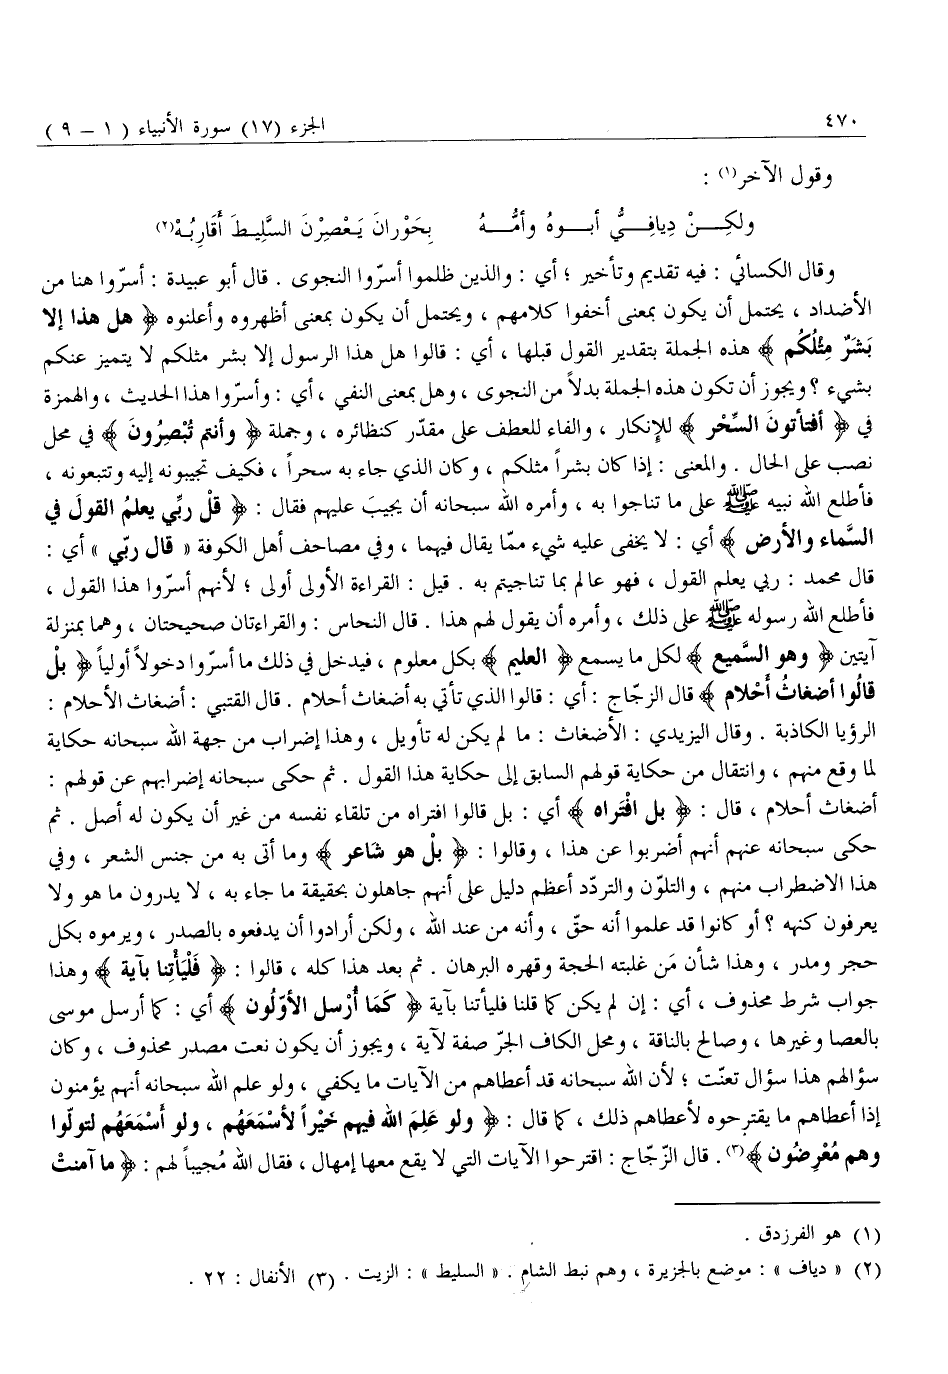 ٤٧٠
الجزء (١٧) سورة الأنبياء ( ١ – ٩ )
وقول الآخر(١) :
ولكِـــنْ دِيافِــيٌّ أبــوهُ وأمُّـــهُ بِحَوْرانَ يَعْصِرْنَ السَّلِيطَ أَقَارِبُهْ(٢)
وقال الكسائي : فيه تقديم وتأخير ؛ أي : والذين ظلموا أسرّوا النجوى . قال أبو عبيدة : أسرّوا هنا من
الأضداد ، يحتمل أن يكون بمعنى أخفوا كلامهم ، ويحتمل أن يكون بمعنى أظهروه وأعلنوه ﴿ هل هذا إلا
بَشَرٌ مِثْلُكُم ﴾ هذه الجملة بتقدير القول قبلها ، أي : قالوا هل هذا الرسول إلا بشر مثلكم لا يتميز عنكم
بشيء ؟ ويجوز أن تكون هذه الجملة بدلاً من النجوى ، وهل بمعنى النفي ، أي : وأسرّوا هذا الحديث ، والهمزة
في ﴿ أفتأتونَ السِّحْر ﴾ للإنكار ، والفاء للعطف على مقدّر كنظائره ، وجملة ﴿ وأنتم تُبْصِرُونَ ﴾ في محل
نصب على الحال . والمعنى : إذا كان بشراً مثلكم ، وكان الذي جاء به سحراً ، فكيف تجيبونه إليه وتتبعونه ،
فأطلع الله نبيه ﷺ على ما تناجوا به ، وأمره الله سبحانه أن يجيبَ عليهم فقال : ﴿ قلْ ربِّي يعلمُ القولَ في
السَّماء والأرض ﴾ أي : لا يخفى عليه شيء ممّا يقال فيهما ، وفي مصاحف أهل الكوفة « قال ربّي » أي :
قال محمد : ربي يعلم القول ، فهو عالم بما تناجيتم به . قيل : القراءة الأولى أولى ؛ لأنهم أسرّوا هذا القول ،
فأطلع الله رسوله ﷺ على ذلك ، وأمره أن يقول لهم هذا . قال النحاس : والقراءتان صحيحتان ، وهما بمنزلة
آيتين ﴿ وهو السَّميع ﴾ لكل ما يسمع ﴿ العليم ﴾ بكل معلوم ، فيدخل في ذلك ما أسرّوا دخولاً أولياً ﴿ بلْ
قالُوا أضغاثُ أَحْلام ﴾ قال الزجّاج : أي : قالوا الذي تأتي به أضغاث أحلام . قال القتبي : أضغاث الأحلام :
الرؤيا الكاذبة . وقال اليزيدي : الأضغاث : ما لم يكن له تأويل ، وهذا إضراب من جهة الله سبحانه حكاية
لما وقع منهم ، وانتقال من حكاية قولهم السابق إلى حكاية هذا القول . ثم حكى سبحانه إضرابهم عن قولهم :
أضغاث أحلام ، قال : ﴿ بل افْتراه ﴾ أي : بل قالوا افتراه من تلقاء نفسه من غير أن يكون له أصل . ثم
حكى سبحانه عنهم أنهم أضربوا عن هذا ، وقالوا : ﴿ بلْ هو شَاعر ﴾ وما أتى به من جنس الشعر ، وفي
هذا الاضطراب منهم ، والتلوّن والتردّد أعظم دليل على أنهم جاهلون بحقيقة ما جاء به ، لا يدرون ما هو ولا
يعرفون كنهه ؟ أو كانوا قد علموا أنه حقّ ، وأنه من عند الله ، ولكن أرادوا أن يدفعوه بالصدر ، ويرموه بكل
حجر ومدر ، وهذا شأن مَن غلبته الحجة وقهره البرهان . ثم بعد هذا كله ، قالوا : ﴿ فَلْيَأْتِنا بآية ﴾ وهذا
جواب شرط محذوف ، أي : إن لم يكن كما قلنا فليأتنا بآية ﴿ كَمَا أُرْسل الأوّلُون ﴾ أي : كما أرسل موسى
بالعصا وغيرها ، وصالح بالناقة ، ومحل الكاف الجرّ صفة لآية ، ويجوز أن يكون نعت مصدر محذوف ، وكان
سؤالهم هذا سؤال تعنّت ؛ لأن الله سبحانه قد أعطاهم من الآيات ما يكفي ، ولو علم الله سبحانه أنهم يؤمنون
إذا أعطاهم ما يقترحوه لأعطاهم ذلك ، كما قال : ﴿ ولو عَلِمَ الله فيهم خَيْراً لأسْمَعَهُم ، ولو أَسْمَعَهُم لتولّوا
وهم مُعْرِضُون ﴾(٣) . قال الزّجّاج : اقترحوا الآيات التي لا يقع معها إمهال ، فقال الله مُجيباً لهم : ﴿ ما آمنتْ
(١) هو الفرزدق .
(٢) « دياف » : موضع بالجزيرة ، وهم نبط الشام . « السليط » : الزيت . (٣) الأنفال : ٢٢ .